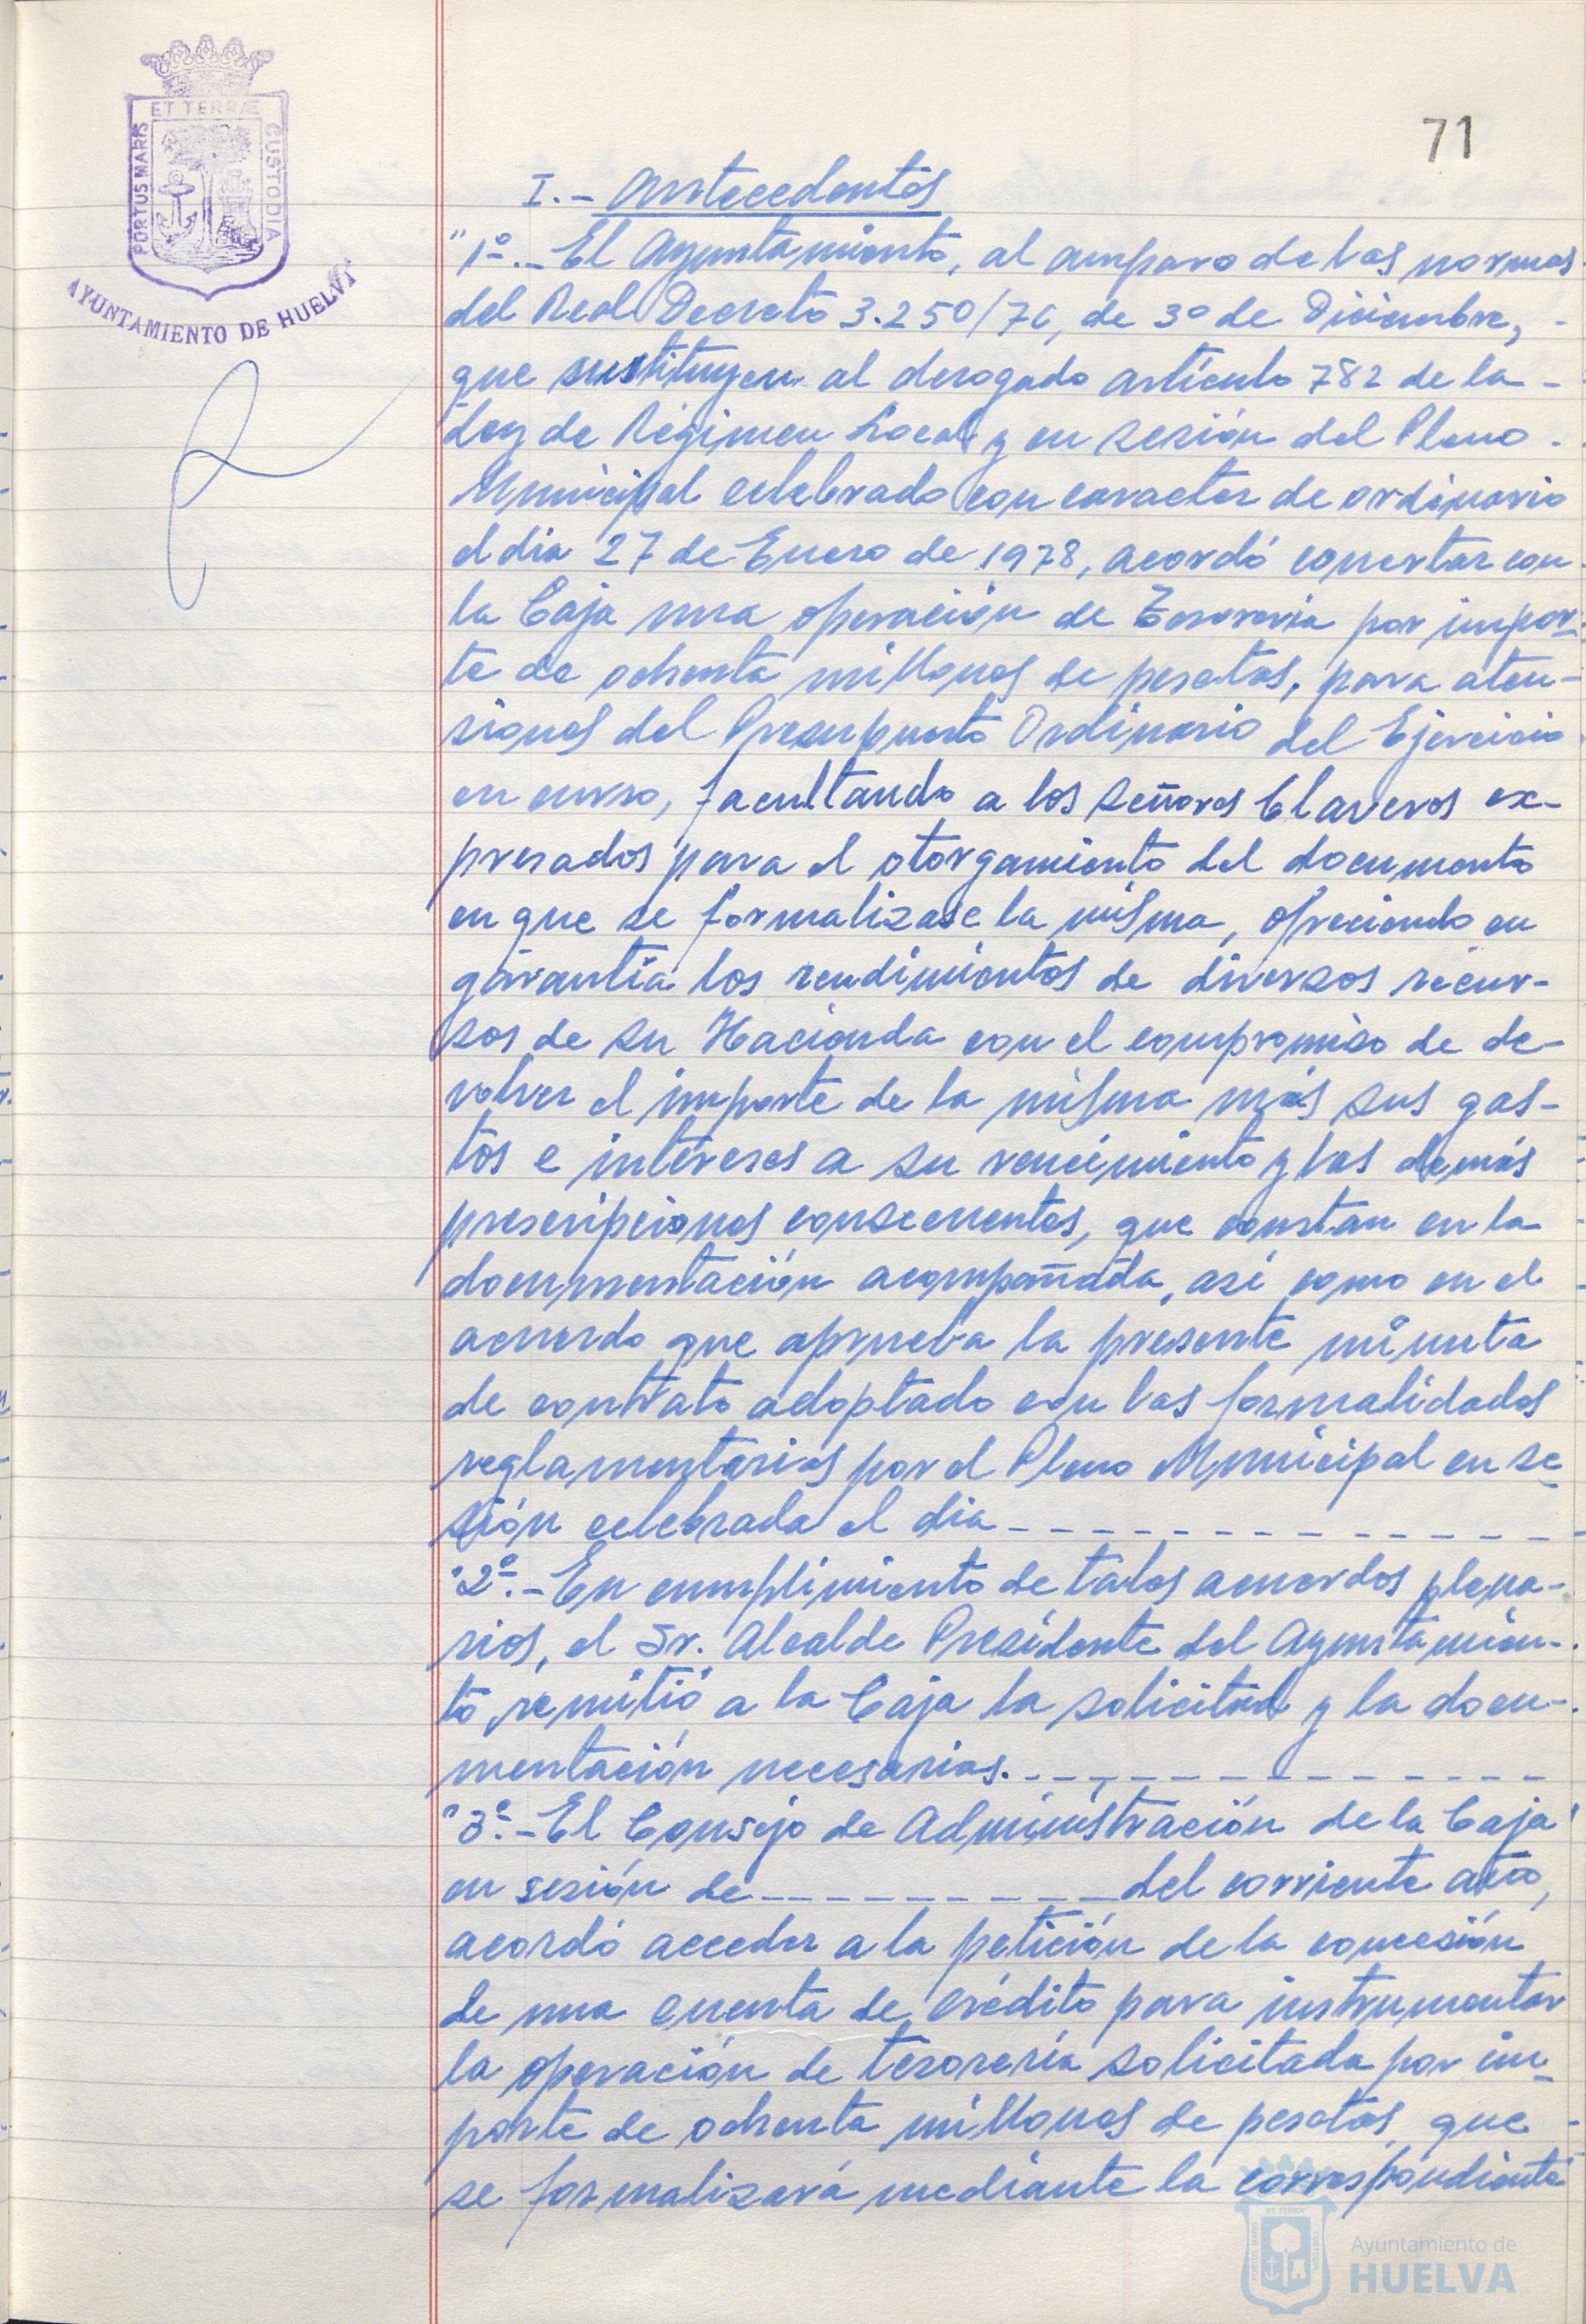 ET TERRÆ
PORTUS MARIS
CUSTODIA
AYUNTAMIENTO DE HUELVA
71
I.- Antecedentes
"1º.- El Ayuntamiento, al amparo de las normas
del Real Decreto 3.250/76, de 30 de Diciembre, -
que sustituyen al derogado artículo 782 de la -
Ley de Régimen Local y en sesión del Pleno -
Municipal celebrado con caracter de ordinario
el dia 27 de Enero de 1978, acordó concertar con
la Caja una operación de Tesoreria por impor-
te de ochenta millones de pesetas, para aten-
siones del Presupuesto Ordinario del Ejercicio
en curso, facultando a los señores Claveros ex-
presados para el otorgamiento del documento
en que se formalizase la misma, ofreciendo en
garantía los rendimientos de diversos recur-
sos de su Hacienda con el compromiso de de-
volver el importe de la misma más sus gas-
tos e intereses a su vencimiento y las demás
prescripciones consecuentes, que constan en la
documentación acompañada, así como en el
acuerdo que aprueba la presente minuta
de contrato adoptado con las formalidades
reglamentarias por el Pleno Municipal en se-
sión celebrada el dia - - - - - - - - - - - - - -
"2º.- En cumplimiento de tales acuerdos plena-
rios, el Sr. Alcalde Presidente del Ayuntamien-
to remitió a la Caja la solicitud y la docu-
mentación necesarias. - - - - - - - - - - - - - -
"3º.- El Consejo de Administración de la Caja
en sesión de - - - - - - - - - - del corriente año,
acordó acceder a la petición de la concesión
de una cuenta de crédito para instrumentar
la operación de tesorería solicitada por im-
porte de ochenta millones de pesetas, que -
se formalizará mediante la correspondiente
Ayuntamiento de
HUELVA